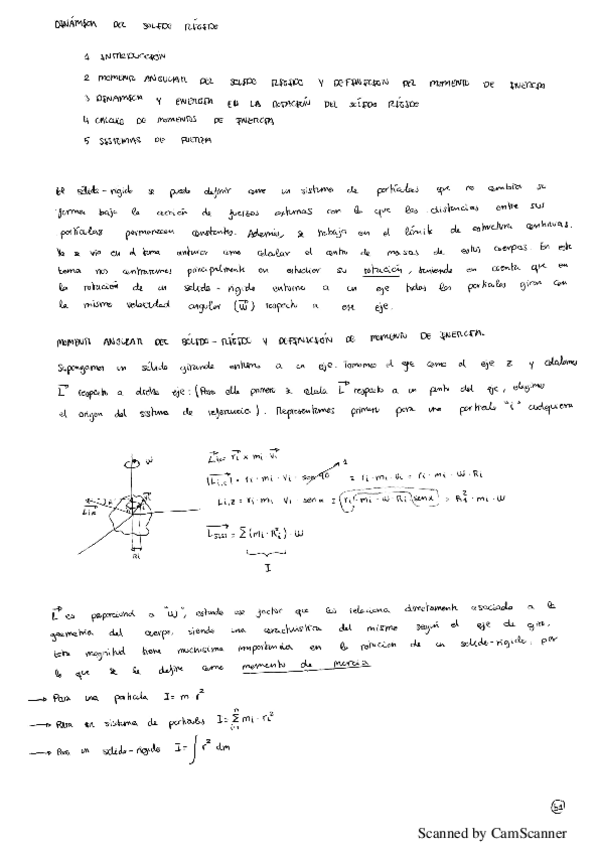 DINÁMICA DEL SÓLIDO RÍGIDO
1 INTRODUCCIÓN
2 MOMENTO ANGULAR DEL SÓLIDO RÍGIDO Y DEFINICIÓN DEL MOMENTO DE INERCIA
3 DINÁMICA Y ENERGÍA EN LA ROTACIÓN DEL SÓLIDO RÍGIDO
4 CÁLCULO DE MOMENTOS DE INERCIA
5 SISTEMAS DE
El sólido-rígido se puede definir como un sistema de partículas que no cambia su
forma bajo la acción de fuerzas externas con lo que las distancias entre sus
partículas permanecen constantes. Además, se trabaja en el límite de estructura continua.
Ya se vio en el tema anterior como calcular el centro de masas de estos cuerpos. En este
tema nos centraremos principalmente en estudiar su rotación, teniendo en cuenta que en
la rotación de un sólido-rígido entorno a un eje todas las partículas giran con
la misma velocidad angular (W) respecto a ese eje.
MOMENTO ANGULAR DEL SÓLIDO-RÍGIDO Y DEFINICIÓN DE MOMENTO DE INERCIA.
Supongamos un sólido girando entorno a un eje. Tomemos el eje como el eje z y calculamos
L respecto a dicho eje: (Para ello primero se calcula L respecto a un punto del eje, elegimos
el origen del sistema de referencia). Representamos primero para una partícula "i" cualquiera
W
Ri
Li,o = ri x mi vi
|Li,o| = ri · mi · vi · sen 90 = ri · mi · vi = ri · mi · W · Ri
Li,z = ri · mi · vi sen α = ri · mi · W Ri sen α = Ri² · mi · W
= Σ(mi · Ri²) · W
I
L es proporcional a "W", estando ese factor que los relaciona directamente asociado a la
geometría del cuerpo, siendo una característica del mismo según el eje de giro,
esta magnitud tiene muchísima importancia en la rotación de un sólido-rígido, por
lo que se le define como momento de inercia
→ Para una partícula I = m r²
→ Para un sistema de partículas I = Σ mi · ri²
→ Para un sólido-rígido I = ∫ r² dm
Scanned by CamScanner